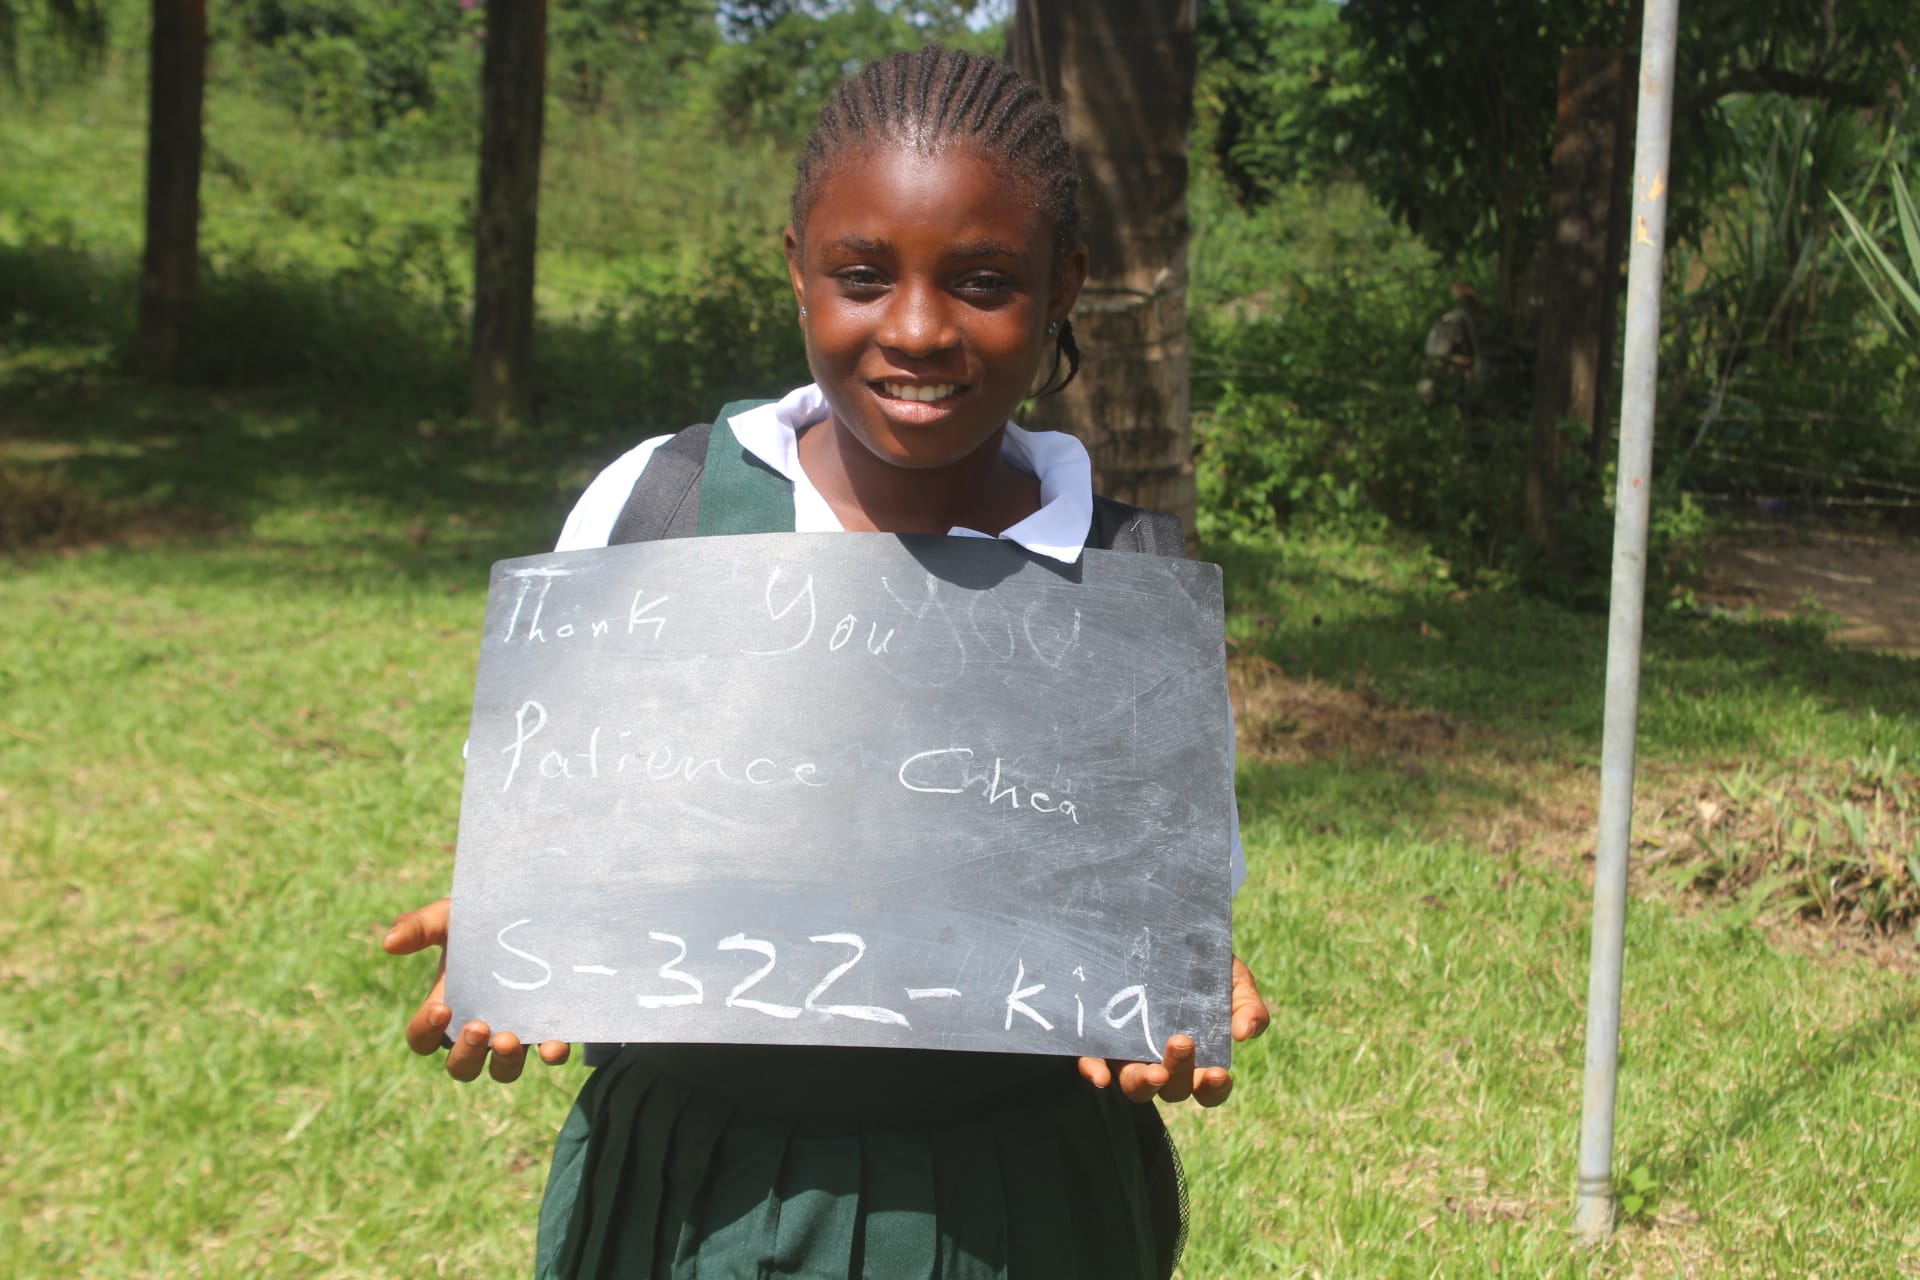 Thank You You
Patience Chea
S-322-kia